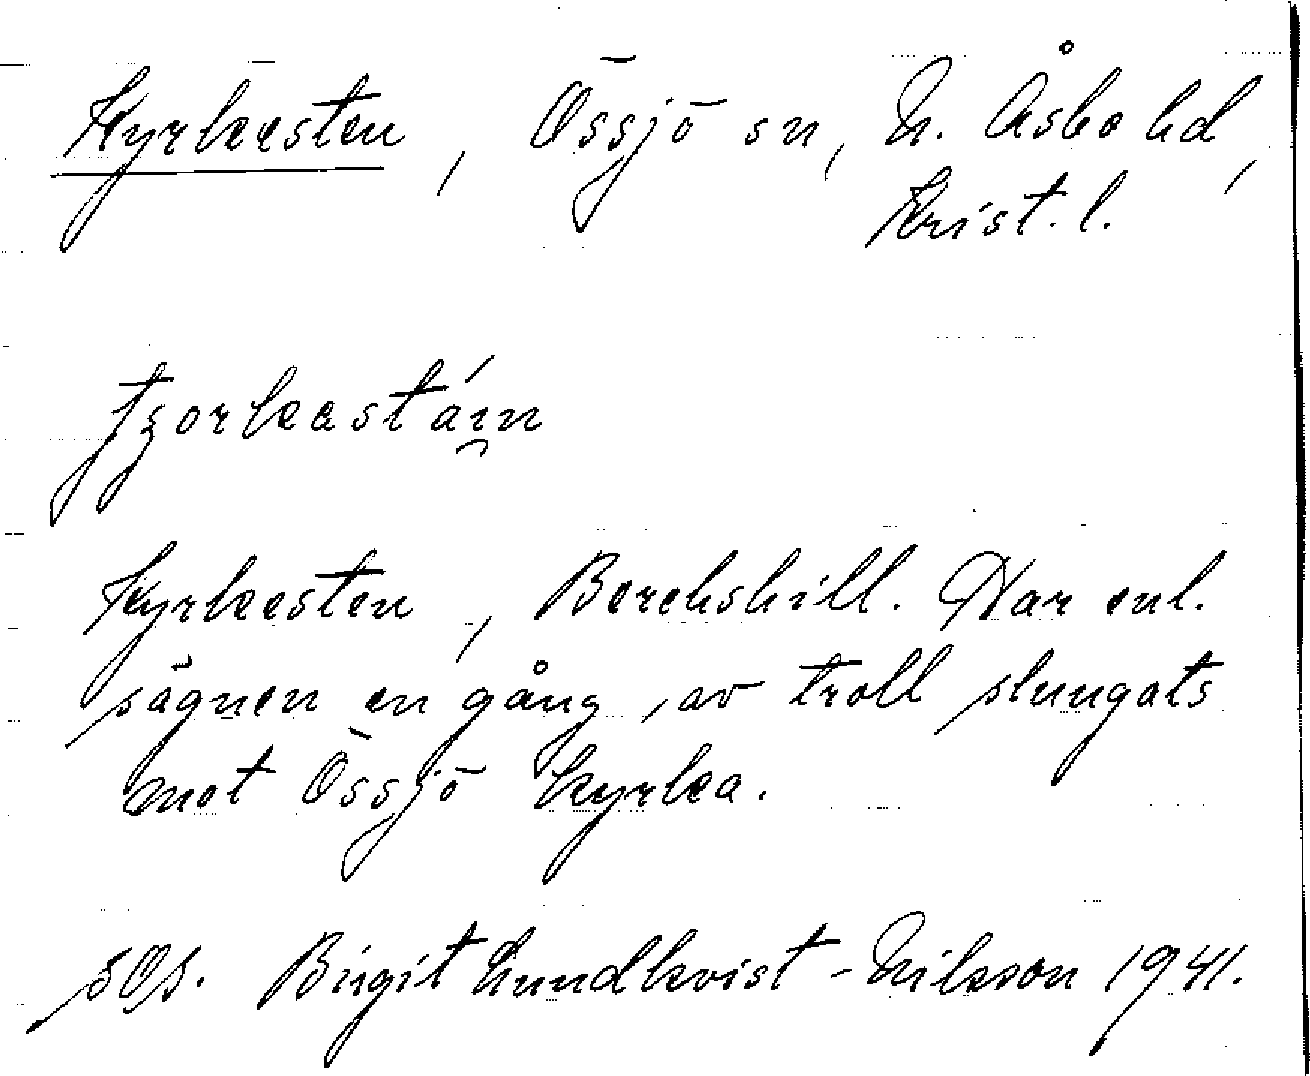 Kyrkesten, Össjö sn, N. Åsbo hd,
Krist. l.
Kyrkesten, Berckshill. Har enl.
sägnen en gång, av troll slungats
mot Össjö kyrka.
Birgit Lundkvist-Nilsson 1941.